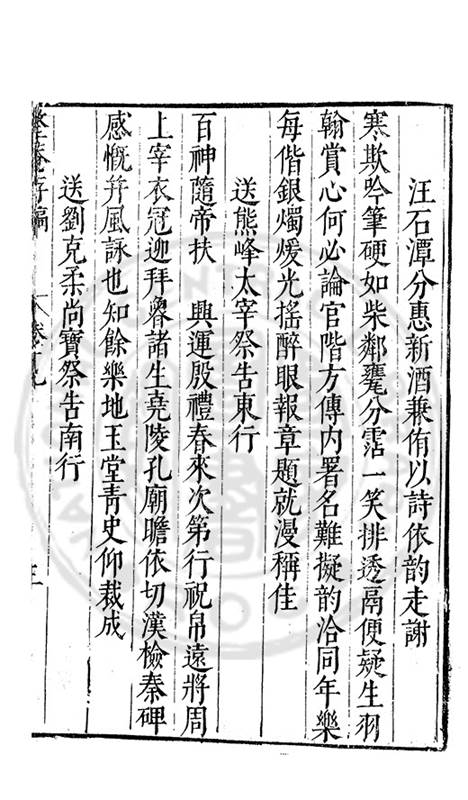 汪石潭分惠新酒兼侑以詩依韵走謝
寒欺吟筆硬如柴鄰甕分霑一笑排透鬲便疑生羽
翰賞心何必論官階方傳内署名難擬韵洽同年樂
每偕銀燭煖光摇醉眼報章題就漫稱佳
送熊峰太宰祭告東行
百神隨帝扶　興運殷禮春來次第行祝帛遠將周
上宰衣冠迎拜魯諸生堯陵孔廟瞻依切漢檢秦碑
感慨并風詠也知餘樂地玉堂青史仰裁成
送劉克柔尚寶祭告南行
存稿
卷十九